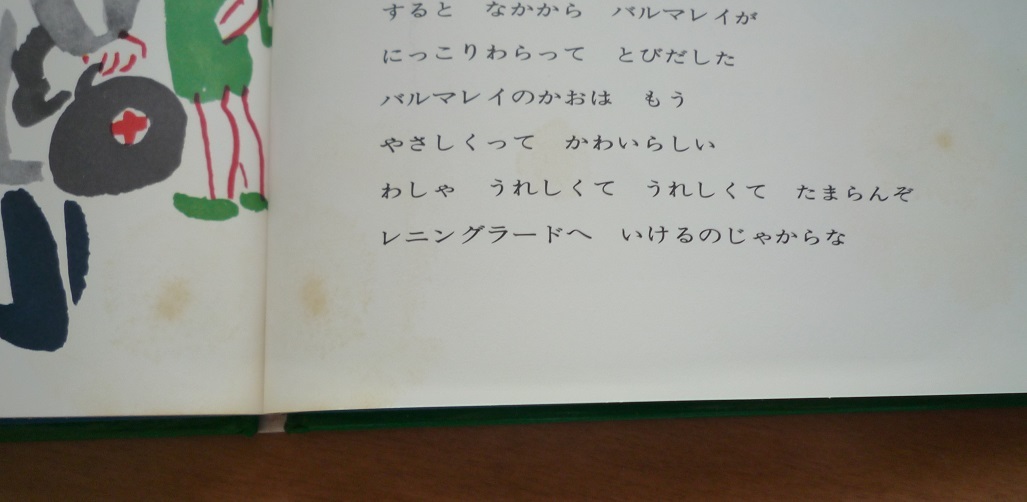 すると　なかから　バルマレイが
にっこりわらって　とびだした
バルマレイのかおは　もう
やさしくって　かわいらしい
わしゃ　うれしくて　うれしくて　たまらんぞ
レニングラードへ　いけるのじゃからな